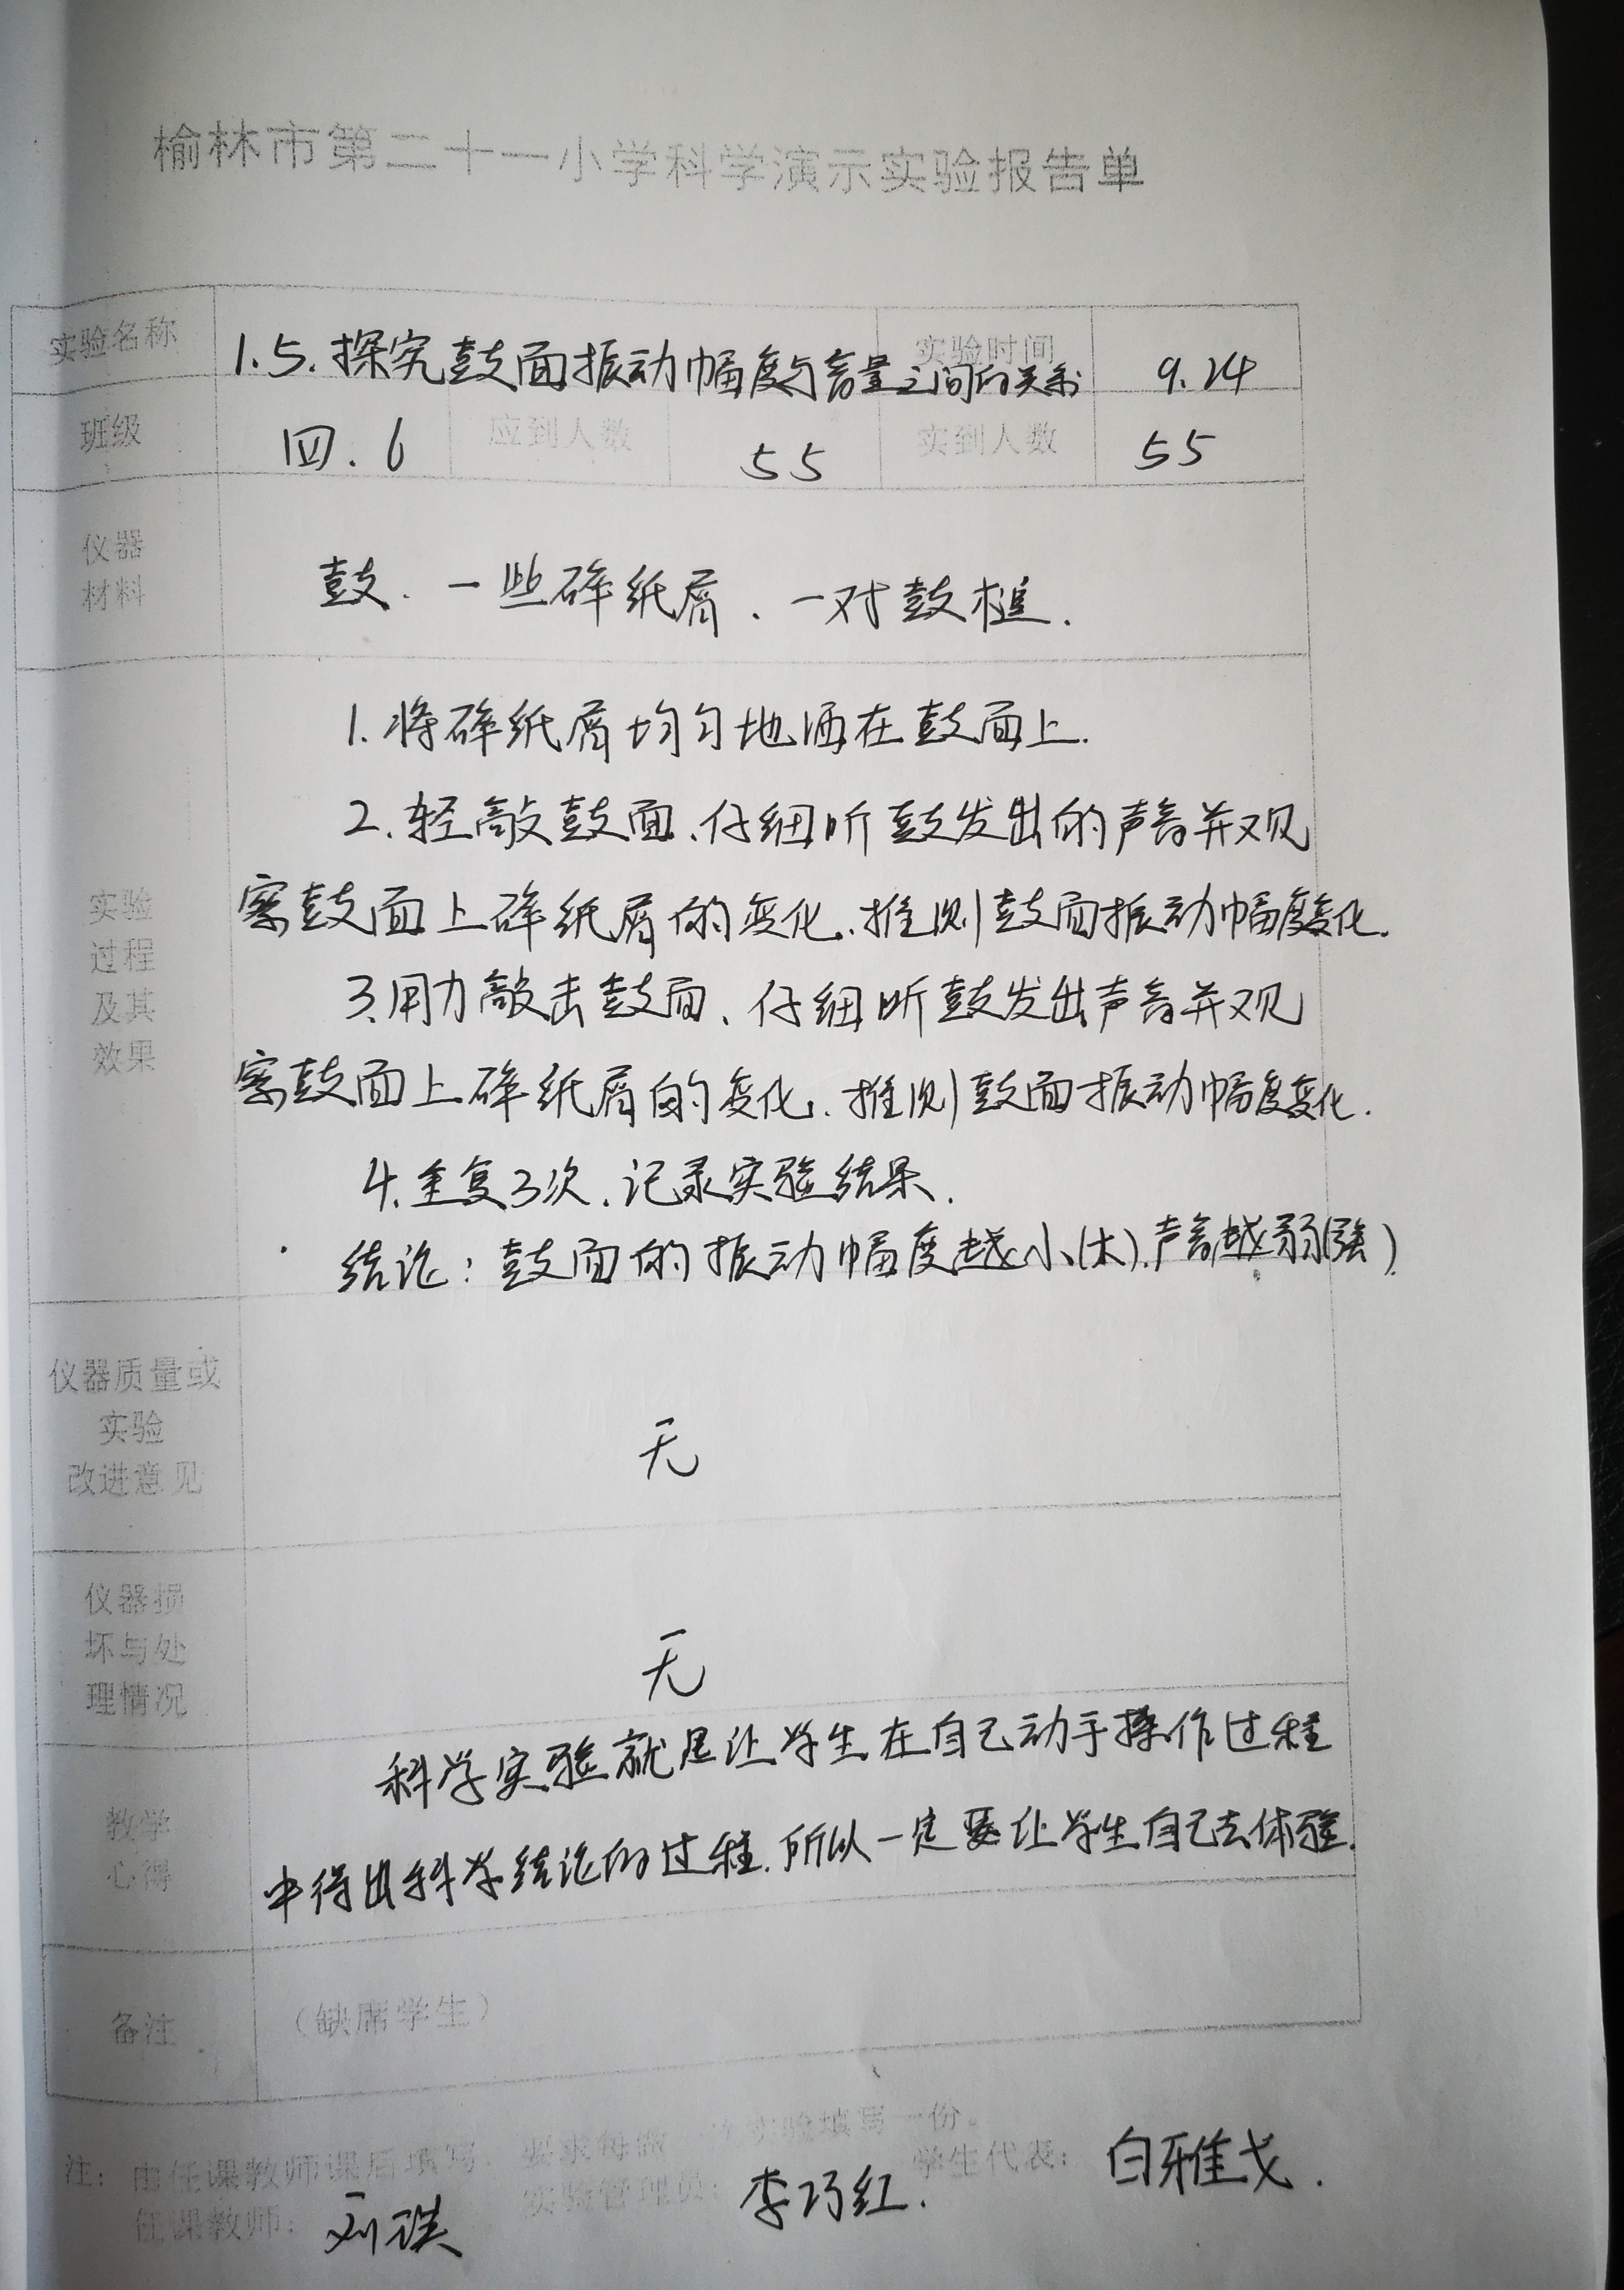 榆林市第二十一小学科学演示实验报告单
实验名称 1.5.探究鼓面振动幅度与音量之间的关系 实验时间 9.24
班级 四.6 应到人数 55 实到人数 55
仪器
材料
鼓、一些碎纸屑、一对鼓槌.
实验
过程
及其
效果
1.将碎纸屑均匀地洒在鼓面上.
2.轻敲鼓面、仔细听鼓发出的声音并观
察鼓面上碎纸屑的变化、推测鼓面振动幅度变化.
3.用力敲击鼓面、仔细听鼓发出声音并观
察鼓面上碎纸屑的变化、推测鼓面振动幅度变化.
4.重复3次、记录实验结果.
结论:鼓面的振动幅度越小(大).声音越弱(强)
仪器质量或
实验
改进意见
无
仪器损
坏与处
理情况
无
教学
心得
科学实验就是让学生在自己动手操作过程
中得出科学结论的过程.所以一定要让学生自己去体验.
备注 （缺席学生）
注：由任课教师课后填写，要求每做 实验填写一份。
任课教师： 刘 实验管理员： 李巧红. 学生代表： 白雅戈.